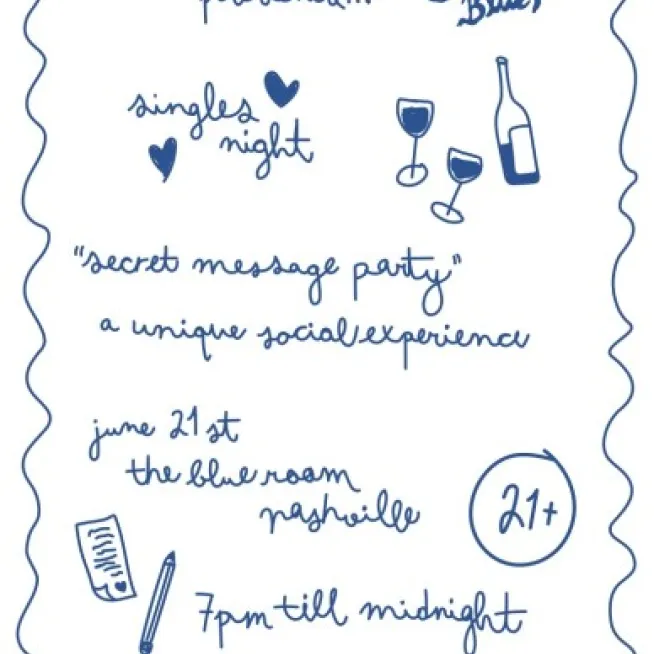 Blue
singles
night
"secret message party"
a unique social experience
june 21st
the blue room
nashville
21+
7pm till midnight